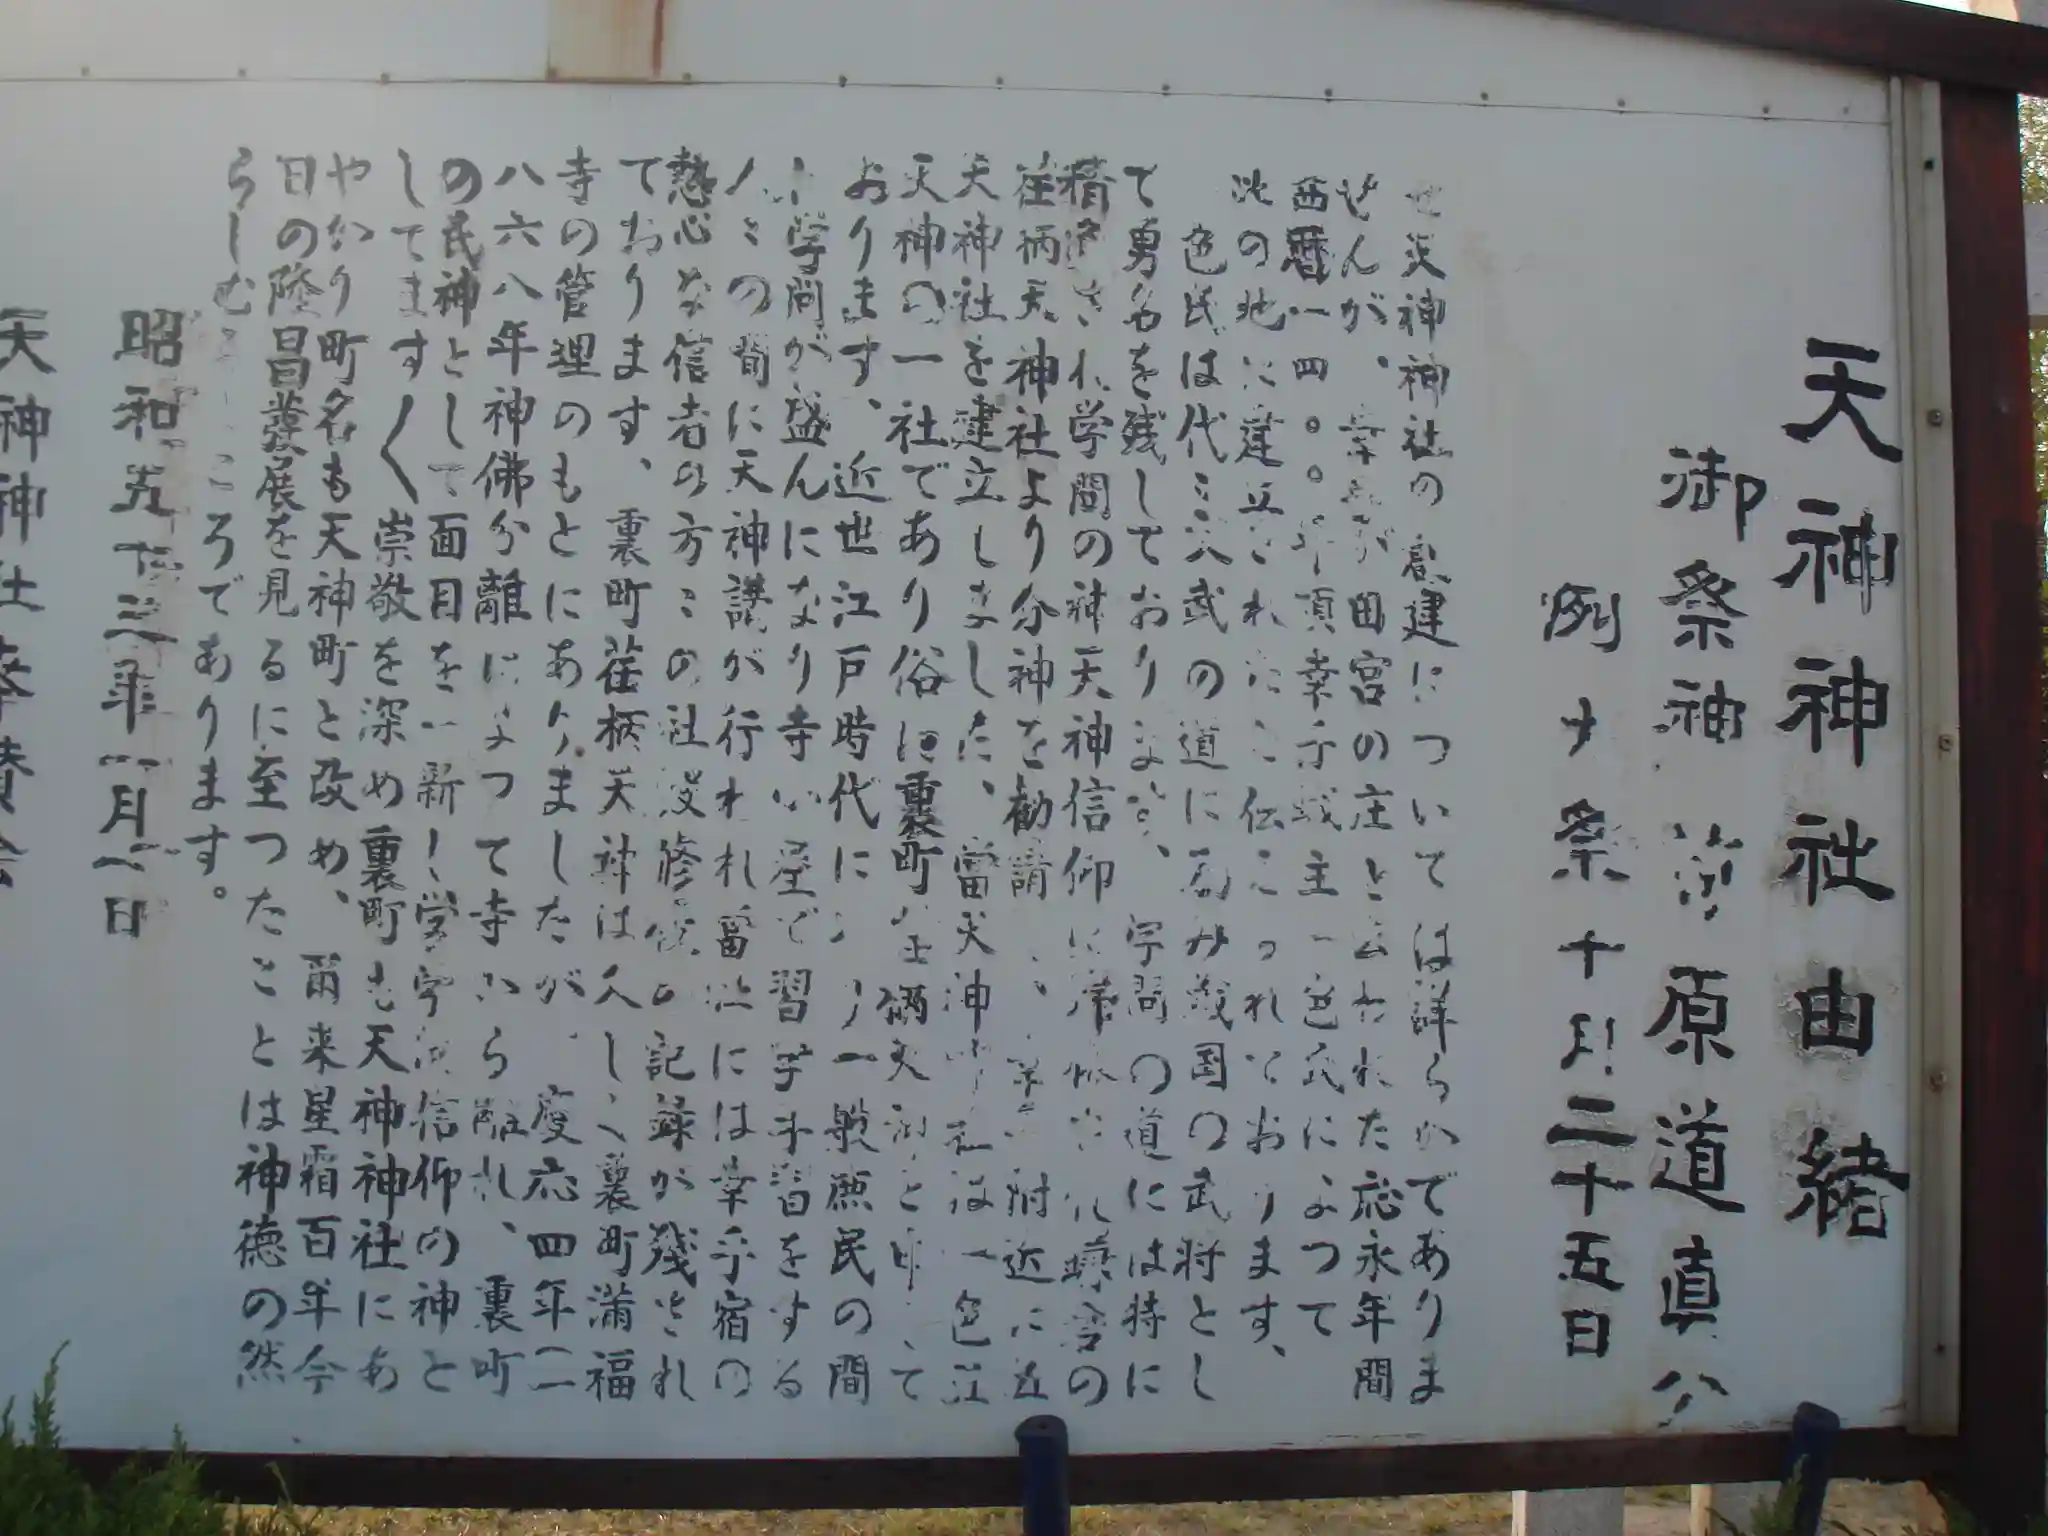 天神神社由緒
御祭神 菅原道真公
例大祭 十月二十五日
天神神社の創建については詳らかでありま
せんが、幸手が田宮の庄と云われた応永年間
西暦一四〇〇年頃幸手城主一色氏によつて
此の地に建立されたと伝えられております、
一色氏は代々文武の道に励み戦国の武将とし
て勇名を残しております、学問の道には特に
精進され学問の神天神信仰に
荏柄天神社より分神を勧請 附近に五
天神社を建立しました、當天神 社は一色江
天神の一社であり俗に裏町荏柄天神と申して
おります、近世江戸時代に入り一般庶民の間
に学問が盛んになり寺小屋で習字手習をする
人々の間に天神講が行われ當社には幸手宿の
熱心な信者の方々の社殿修復の記録が残され
ております、裏町荏柄天神は久しく裏町満福
寺の管理のもとにありましたが、慶応四年(一
八六八年神佛分離によつて寺から離れ、裏町
の民神として面目を一新し学字の信仰の神と
してますく崇敬を深め裏町も天神神社にあ
やかり町名も天神町と改め、爾来星霜百年今
日の隆昌発展を見るに至つたことは神徳の然
らしむるところであります。
昭和五十三年一月一日
天神神社奉賛会